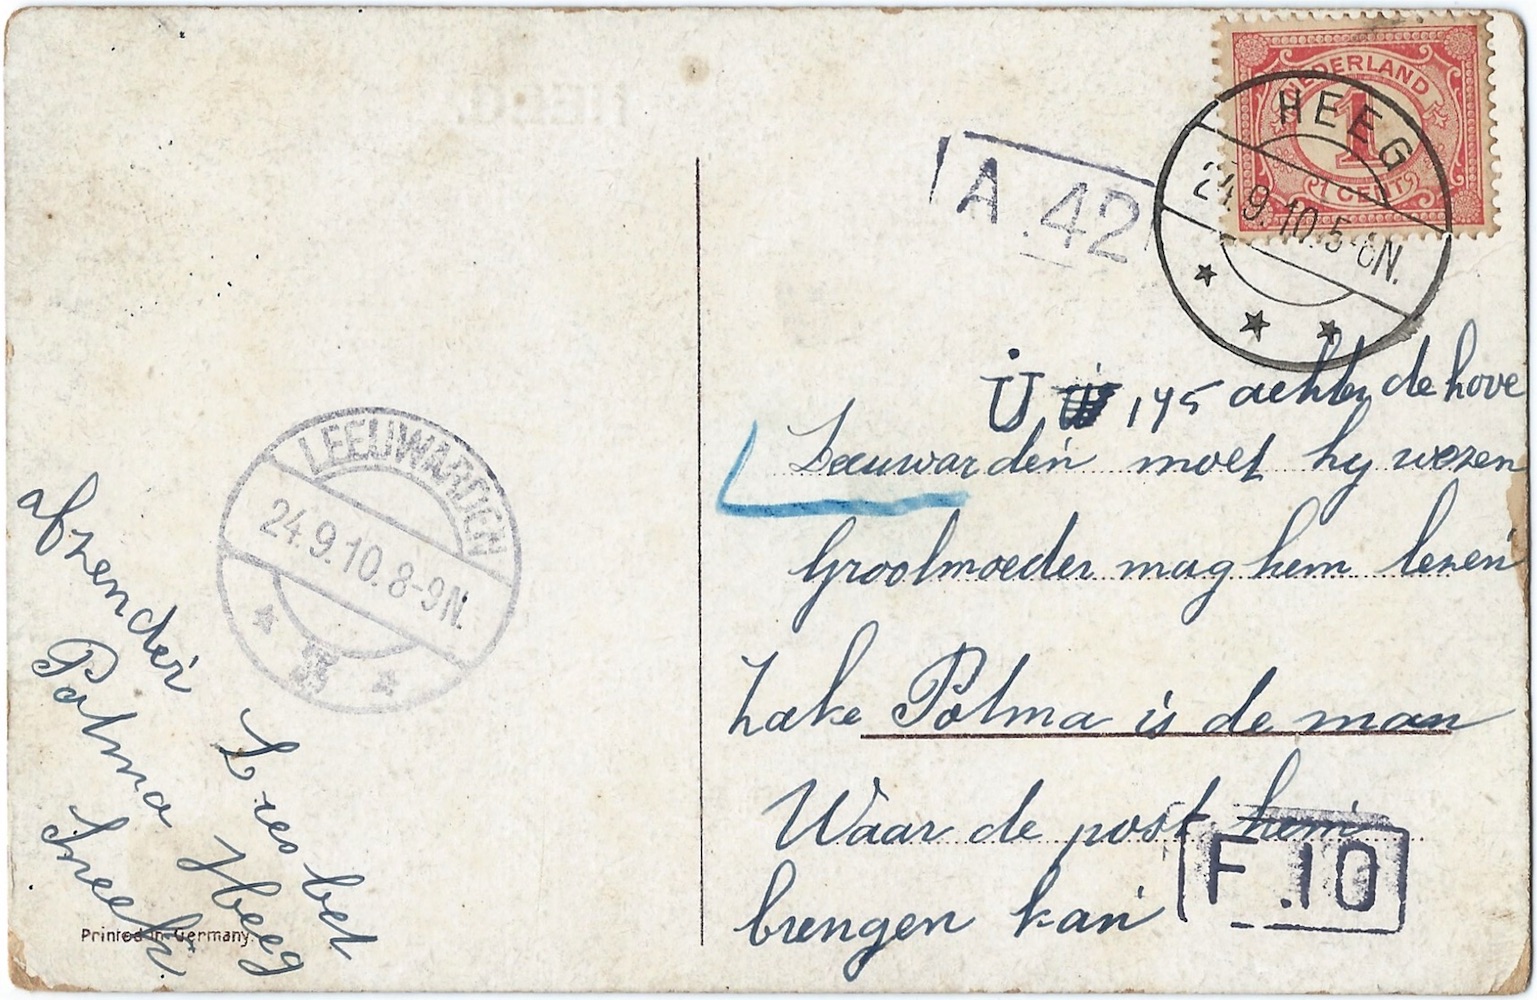 NEDERLAND
1
1 CENT
HEEG
24.9.10.5-6N.
A.42
U 145 achter de hove
Leeuwarden moet hy wezen
Grootmoeder mag hem lezen
Haike Polma is de man
Waar de post hem
brengen kan
F.10
LEEUWARDEN
24.9.10.8-9N.
afzender
Polma
Sneek
bet
Heeg
Printed in Germany.